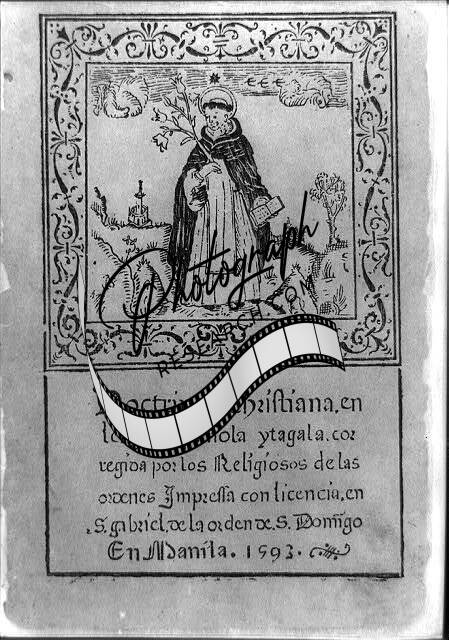 Photograph
RESEARCH.COM
Christiana, en
ytagala. cor
regida por los Religiosos de las
ordenes Impressa con licencia, en
S. gabriel, de la orden de. S. Domīgo
En Manila. 1593.